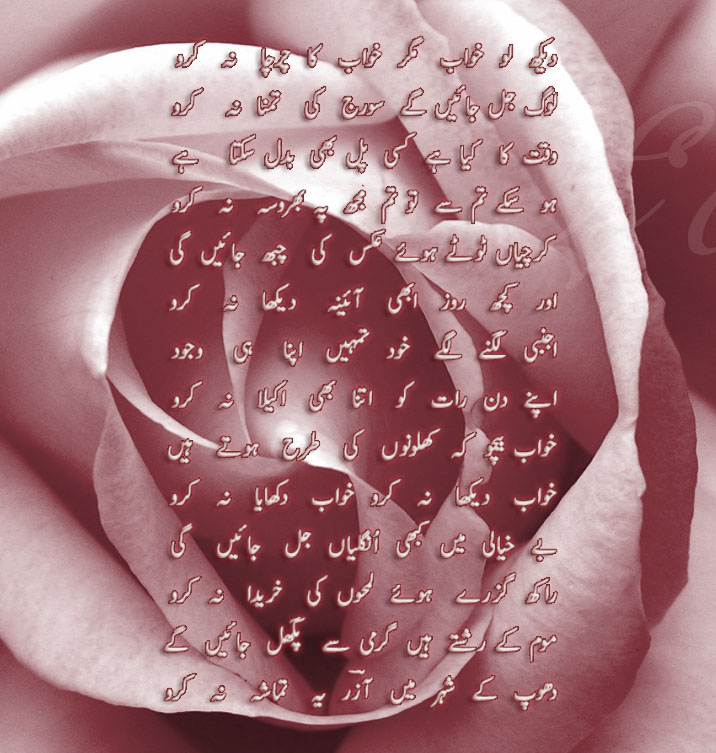 دیکھ لو خواب مگر خواب کا چرچا نہ کرو
لوگ جل جائیں گے سورج کی تمنا نہ کرو
وقت کا کیا ہے کسی پل بھی بدل سکتا ہے
ہو سکے تم سے تو تم مجھ پہ بھروسہ نہ کرو
کرچیاں ٹوٹے ہوئے عکس کی چبھ جائیں گی
اور کچھ روز ابھی آئینہ دیکھا نہ کرو
اجنبی لگنے لگے خود تمہیں اپنا ہی وجود
اپنے دن رات کو اتنا بھی اکیلا نہ کرو
خواب بچو کہ کھلونوں کی طرح ہوتے ہیں
خواب دیکھا نہ کرو خواب دکھایا نہ کرو
بے خیالی میں کبھی اُنگلیاں جل جائیں گی
راکھ گزرے ہوئے لمحوں کی خریدا نہ کرو
موم کے رشتے ہیں گرمی سے پگھل جائیں گے
دھوپ کے شہر میں آزر یہ تماشہ نہ کرو